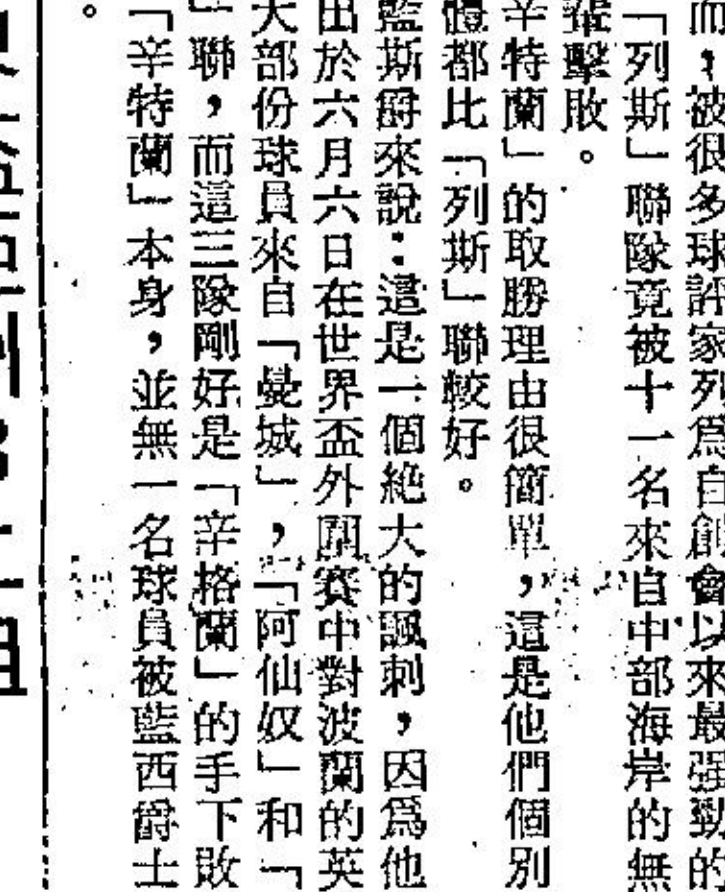 而，被很多球評家列爲自創會以來最强勁的
「列斯」聯隊竟被十一名來自中部海岸的無
輩擊敗。
辛特蘭」的取勝理由很簡單，這是他們個別
體都比「列斯」聯較好。
藍斯爵來說：這是一個絶大的諷刺，因爲他
出於六月六日在世界盃外圍賽中對波蘭的英
大部份球員來自「曼城」，「阿仙奴」和「
」聯，而這三隊剛好是「辛格蘭」的手下敗
「辛特蘭」本身，並無一名球員被藍西爵士
。